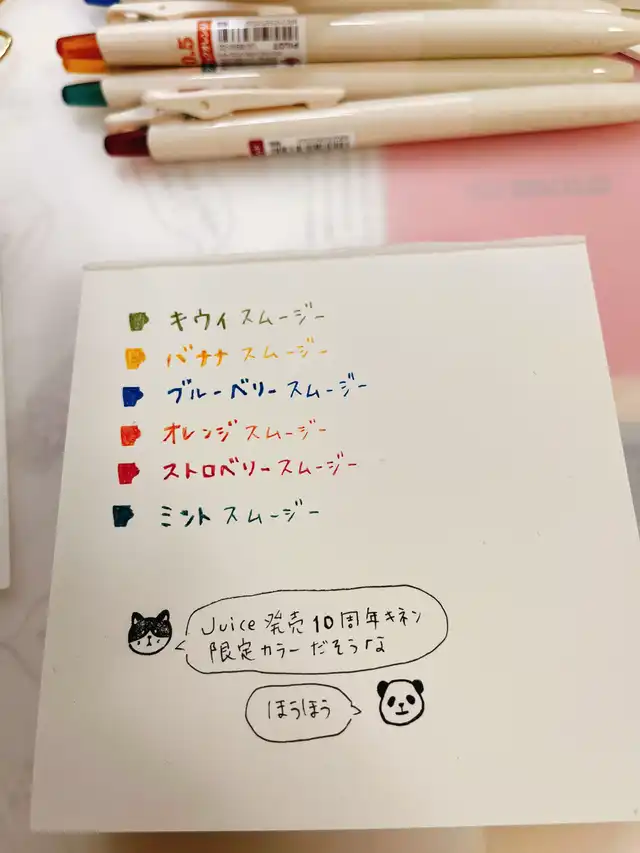 0.5
PILOT
キウイ スムージー
バナナ スムージー
ブルーベリー スムージー
オレンジ スムージー
ストロベリー スムージー
ミント スムージー
Juice 発売 10周年キネン
限定カラーだそうな
ほうほう